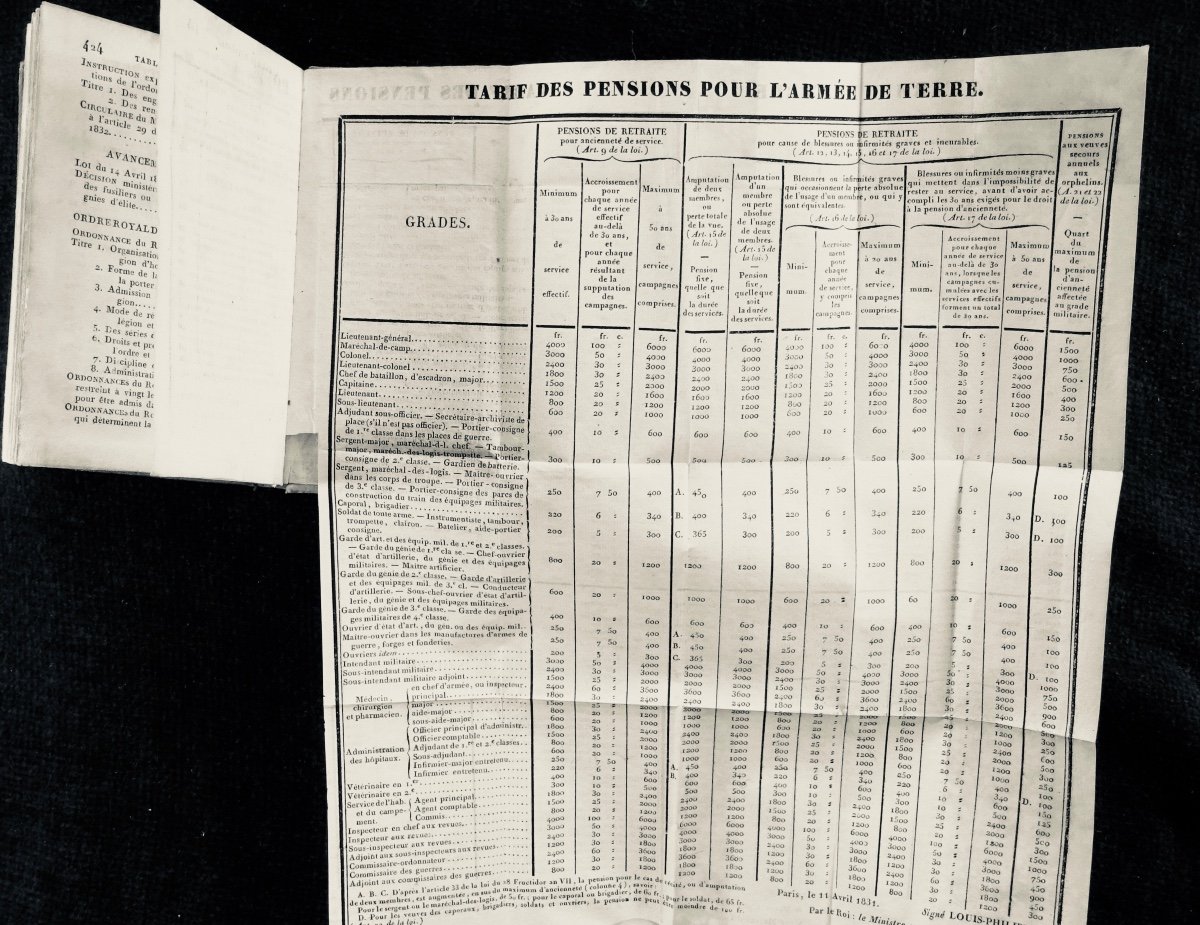 424 TABL
INSTRUCTION exp
tions de l'ordo
Titre 1. Des eng
2. Des ren
CIRCULAIRE du M
à l'article 29 d
1832
AVANCEM
LOI du 14 Avril 18
DÉCISION ministér
des fusiliers ou
gnies d'élite
ORDRE ROYAL D
ORDONNANCE du R
Titre 1. Organisatio
gion d'ho
2. Forme de la
la porter
3. Admission
gion
4. Mode de re
légion et
5. Des séries
6. Droits et pr
l'ordre et
7. Discipline
8. Administrati
ORDONNANCES du Ro
restreint à vingt le
pour être admis da
ORDONNANCES du Ro
qui déterminent la
TARIF DES PENSIONS POUR L'ARMÉE DE TERRE.
GRADES.
PENSIONS DE RETRAITE
pour ancienneté de service.
(Art. 9 de la loi.)
Minimum
à 30 ans
de
service
effectif.
Accroissement
pour
chaque année
de service
effectif
au-delà
de 30 ans,
et
pour chaque
année
résultant
de la
supputation
des
campagnes.
Maximum
à
50 ans
de
service,
campagnes
comprises.
PENSIONS DE RETRAITE
pour cause de blessures ou infirmités graves et incurables.
(Art. 12, 13, 14, 15, 16 et 17 de la loi.)
Amputation
de deux
membres,
ou
perte totale
de la vue.
(Art. 15 de
la loi.)
—
Pension
fixe,
quelle que
soit
la durée
des services.
Amputation
d'un
membre
ou perte
absolue
de l'usage
de deux
membres.
(Art. 15 de
la loi.)
—
Pension
fixe,
quelle que
soit
la durée
des services.
Blessures ou infirmités graves
qui occasionnent la perte absolue
de l'usage d'un membre, ou qui y
sont équivalentes.
(Art. 16 de la loi.)
Mini-
mum.
Accroisse-
ment
pour
chaque
année
de service,
y compris
les
campagnes.
Maximum
à 20 ans
de
service,
campagnes
comprises.
Blessures ou infirmités moins graves
qui mettent dans l'impossibilité de
rester au service, avant d'avoir ac-
compli les 30 ans exigés pour le droit
à la pension d'ancienneté.
(Art. 17 de la loi.)
Mini-
mum.
Accroissement
pour chaque
année de service
au-delà de 30
ans, lorsque les
campagnes cu-
mulées avec les
services effectifs
forment un total
de 30 ans.
Maximum
à 50 ans
de
service,
campagnes
comprises.
PENSIONS
aux veuves
secours
annuels
aux
orphelins.
(A. 21 et 22
de la loi.)
—
Quart
du
maximum
de
la pension
d'an-
cienneté
affectée
au grade
militaire.
fr. fr. c. fr. fr. fr. fr. fr. c. fr. fr. fr. c. fr. fr.
Lieutenant-général 4000 100 : 6000 6000 6000 4000 100 : 6000 4000 100 : 6000 1500
Maréchal-de-camp 3000 50 : 4000 4000 4000 3000 50 : 4000 3000 50 : 4000 1000
Colonel 2400 30 : 3000 3000 3000 2400 30 : 3000 2400 30 : 3000 750
Lieutenant-colonel 1800 30 : 2400 2400 2400 1800 30 : 2400 1800 30 : 2400 600
Chef de bataillon, d'escadron, major 1500 25 : 2000 2000 2000 1500 25 : 2000 1500 25 : 2000 500
Capitaine 1200 20 : 1600 1600 1600 1200 20 : 1600 1200 20 : 1600 400
Lieutenant 800 20 : 1200 1200 1200 800 20 : 1200 800 20 : 1200 300
Sous-lieutenant 600 20 : 1000 1000 1000 600 20 : 1000 600 20 : 1000 250
Adjudant sous-officier. — Secrétaire-archiviste de
place (s'il n'est pas officier). — Portier-consigne
de 1.re classe dans les places de guerre. 400 10 : 600 600 600 400 10 : 600 400 10 : 600 150
Sergent-major, maréchal-d-l. chef. — Tambour-
major, maréch.-des-logis-trompette. — Portier-
consigne de 2.e classe. — Gardien de batterie. 300 10 : 500 500 500 300 10 : 500 300 10 : 500 125
Sergent, maréchal-des-logis. — Maitre-ouvrier
dans les corps de troupe. — Portier-consigne
de 3.e classe. — Portier-consigne des parcs de
construction du train des équipages militaires. 250 7 50 400 A. 450 400 250 7 50 400 250 7 50 400 100
Caporal, brigadier 220 6 : 340 B. 400 340 220 6 : 340 220 6 : 340 D. 100
Soldat de toute arme. — Instrumentiste, tambour,
trompette, clairon. — Batelier, aide-portier
consigne. 200 5 : 300 C. 365 300 200 5 : 300 200 5 : 300 D. 100
Garde d'art. et des équip. mil. de 1.re et 2.e classes.
— Garde du génie de 1.re classe. — Chef-ouvrier
d'état d'artillerie, du génie et des équipages
militaires. — Maître artificier. 800 20 : 1200 1200 1200 800 20 : 1200 800 20 : 1200 300
Garde du génie de 2.e classe. — Garde d'artillerie
et des équipages mil. de 3.e cl. — Conducteur
d'artillerie. — Sous-chef-ouvrier d'état d'artil-
lerie, du génie et des équipages militaires. 600 20 : 1000 1000 1000 600 20 : 1000 60 20 : 1000 250
Garde du génie de 3.e classe. — Garde des équipa-
ges militaires de 4.e classe. 400 10 : 600 600 600 400 10 : 600 400 10 : 600 150
Ouvrier d'état d'art., du gén. ou des équip. mil. 250 7 50 400 A. 450 400 250 7 50 400 250 7 50 400 100
Maître-ouvrier dans les manufactures d'armes de
guerre, forges et fonderies. 250 7 50 400 B. 450 400 250 7 50 400 250 7 50 400 100
Ouvriers idem 200 5 : 300 C. 365 300 200 5 : 300 200 5 : 300 D. 100
Intendant militaire 3000 50 : 4000 4000 4000 3000 50 : 4000 3000 50 : 4000 1000
Sous-intendant militaire 2400 30 : 3000 3000 3000 2400 30 : 3000 2400 30 : 3000 750
Sous-intendant militaire adjoint 1500 25 : 2000 2000 2000 1500 25 : 2000 1500 25 : 2000 500
Médecin
chirurgien
et pharmacien.
en chef d'armée, ou inspecteur. 2400 60 : 3600 3600 3600 2400 60 : 3600 2400 60 : 3600 900
principal 1800 30 : 2400 2400 2400 1800 30 : 2400 1800 30 : 2400
major 1500 25 : 2000 2000 2000 1500 25 : 2000 1500 25 : 2000
aide-major 800 20 : 1200 1200 1200 800 20 : 1200
sous-aide-major 600 20 : 1000 1000 1000 600 20 : 1000
Administration
des hôpitaux.
Officier principal d'administr. 1800 30 : 2400 2400 2400 1800 30 : 2400
Officier comptable 1500 25 : 2000 2000 2000 1500 25 : 2000
Adjudant de 1.re et 2.e classes 800 20 : 1200 1200 1200 800 20 : 1200
Sous-adjudant 600 20 : 1000 1000 1000 600 20 : 1000
Infirmier-major entretenu 250 7 50 400 A. 450 400 250 7 50 400
Infirmier entretenu 220 6 : 340 B. 400 340 220 6 : 340
Vétérinaire en 1.er 400 10 : 600 600 600 400 10 : 600
Vétérinaire en 2.e 300 10 : 500 500 500 300 10 : 500
Service de l'hab.
et du campe-
ment.
Agent principal 1800 30 : 2400 2400 2400 1800 30 : 2400
Agent comptable 1500 25 : 2000 2000 2000 1500 25 : 2000
Commis 800 20 : 1200 1200 1200 800 20 : 1200
Inspecteur en chef aux revues 4000 100 : 6000 6000 6000 4000 100 : 6000
Inspecteur aux revues 3000 50 : 4000 4000 4000 3000 50 : 4000
Sous-inspecteur aux revues 2400 30 : 3000 3000 3000 2400 30 : 3000
Adjoint aux sous-inspecteurs aux revues
Commissaire-ordonnateur
Commissaire des guerres
Adjoint aux commissaires des guerres
A. B. C. D'après l'article 33 de la loi du 28 Fructidor an VII, la pension pour le cas de cécité, ou d'amputation
de deux membres, est augmentée, en sus du maximum d'ancienneté (colonne 4), savoir:
Pour le sergent ou le maréchal-des-logis, de 50 fr.; pour le caporal ou brigadier, de 60 fr.; pour le soldat, de 65 fr.
D. Pour les veuves des caporaux, brigadiers, soldats et ouvriers, la pension ne peut être moindre de 100 fr.
de la loi.)
Paris, le 11 Avril 1831.
Signé LOUIS-PHILIP
Par le Roi: le Ministre